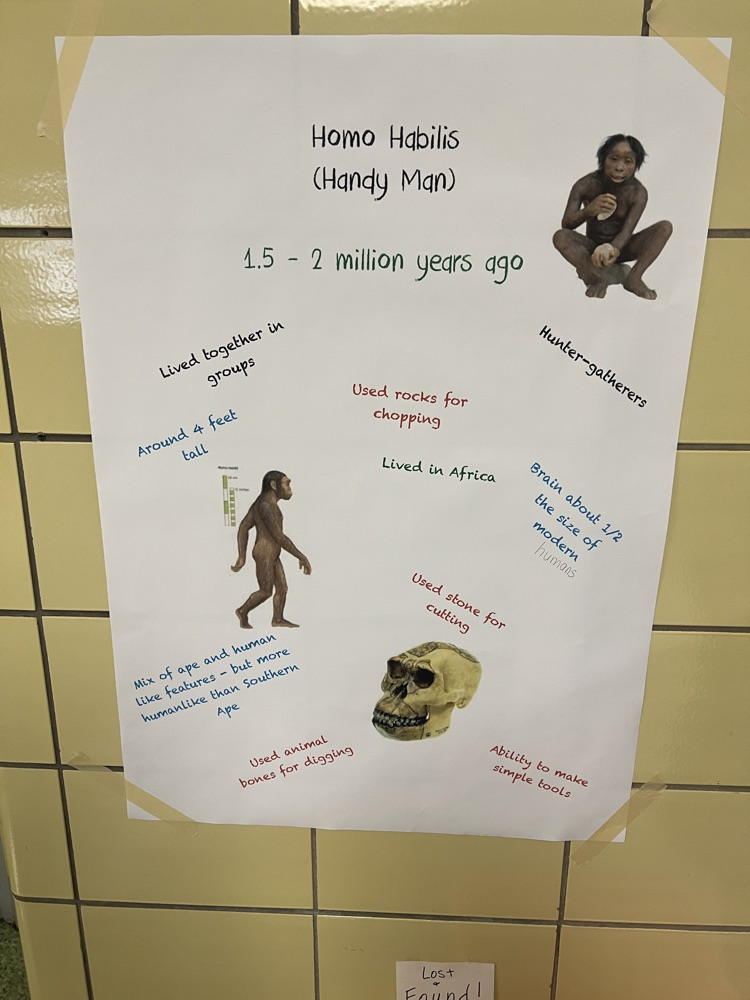 Homo Habilis
(Handy Man)
1.5 - 2 million years ago
Lived together in
groups
Hunter-gatherers
Used rocks for
chopping
Around 4 feet
tall
Lived in Africa
Brain about 1/2
the size of
modern
humans
Used stone for
cutting
Mix of ape and human
like features - but more
humanlike than Southern
Ape
Used animal
bones for digging
Ability to make
simple tools
Lost
&
Found!